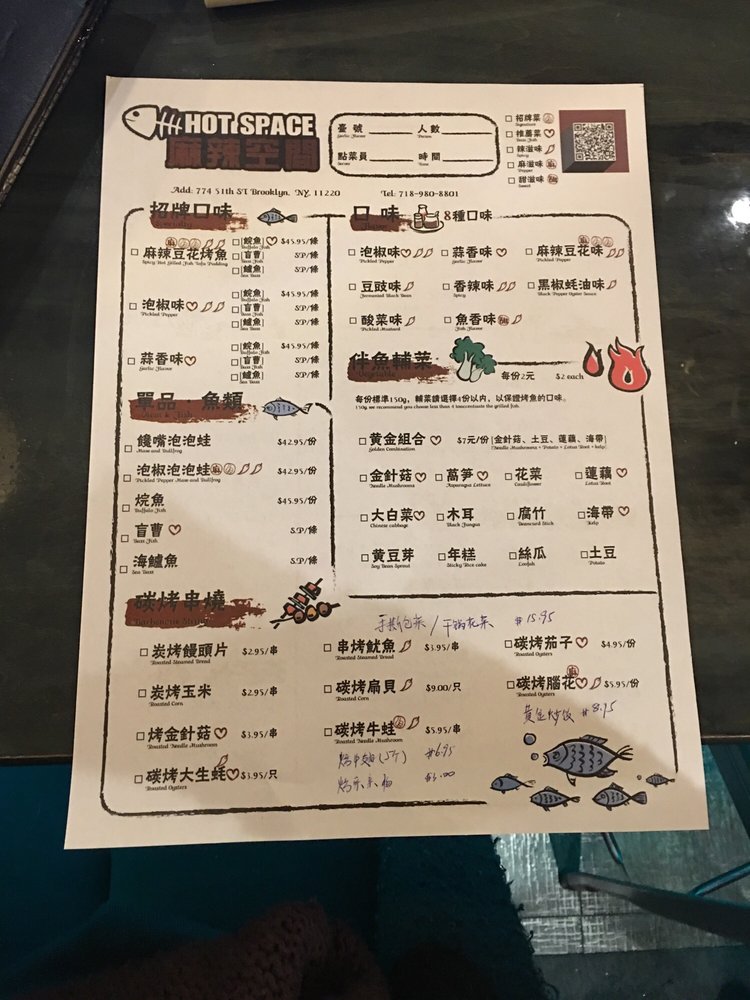 HOT SPACE
麻辣空間
臺號 人數
點菜員 時間
招牌菜
Signature
推薦菜
辣滋味
麻滋味
Pepper
甜滋味
Sweet
Add: 774 51th ST Brooklyn, NY, 11220 Tel: 718-980-8801
招牌口味
麻辣豆花烤魚
Spicy Hot Grilled Fish Tofu Pudding
[鯇魚] $45.95/條
Buffalo Fish
[盲曹] S.P/條
Bass Fish
[鱸魚] S.P/條
Sea Bass
泡椒味
Pickled Pepper
[鯇魚] $45.95/條
Buffalo Fish
[盲曹] S.P/條
Bass Fish
[鱸魚] S.P/條
Sea Bass
蒜香味
Garlic Flavor
[鯇魚] $45.95/條
Buffalo Fish
[盲曹] S.P/條
Bass Fish
[鱸魚] S.P/條
Sea Bass
單品·魚類
饞嘴泡泡蛙 $42.95/份
泡椒泡泡蛙 麻 $42.95/份
烷魚 $45.95/份
Buffalo Fish
盲曹 S.P/條
Bass Fish
海鱸魚 S.P/條
Sea Bass
碳烤串燒
炭烤饅頭片 $2.95/串
Roasted Steamed Bread
炭烤玉米 $2.95/串
Roasted Corn
烤金針菇 $3.95/串
Roasted Needle Mushroom
碳烤大生蚝 $3.95/只
Roasted Oysters
口味 8種口味
泡椒味 蒜香味 麻辣豆花味
Pickled Pepper Garlic Flavor
豆豉味 香辣味 黑椒蚝油味
Fermented Black Bean Spicy Black Pepper Oyster Sauce
酸菜味 魚香味
Pickled Mustard Fish Flavor
伴魚輔菜
Vegetable
每份2元 $2 each
每份標準150g, 輔菜請選擇4份以内, 以保證烤魚的口味。
150g we recommend you choose less than 4 concentrate the grilled fish.
黄金組合 $7元/份 [金針菇、土豆、蓮藕、海帶]
Golden Combination [Needle Mushrooms + Potato + Lotus Root + kelp]
金針菇 萵笋 花菜 蓮藕
Needle Mushrooms Asparagus Lettuce Cauliflower Lotus Root
大白菜 木耳 腐竹 海帶
Chinese cabbage Black Fungus Beancurd Stick Kelp
黄豆芽 年糕 絲瓜 土豆
Soy Bean Sprout Sticky Rice cake Loofah Potato
手撕包菜 / 干锅花菜 $15.95
串烤魷魚 $3.95/串
Roasted Steamed Bread
碳烤扇貝 $9.00/只
Roasted Corn
碳烤牛蛙 $5.95/串
Roasted Needle Mushroom
碳烤茄子 $4.95/份
Roasted Oysters
碳烤腦花 麻 $5.95/份
Roasted Oysters
黄金炒饭 $8.95
$6.95